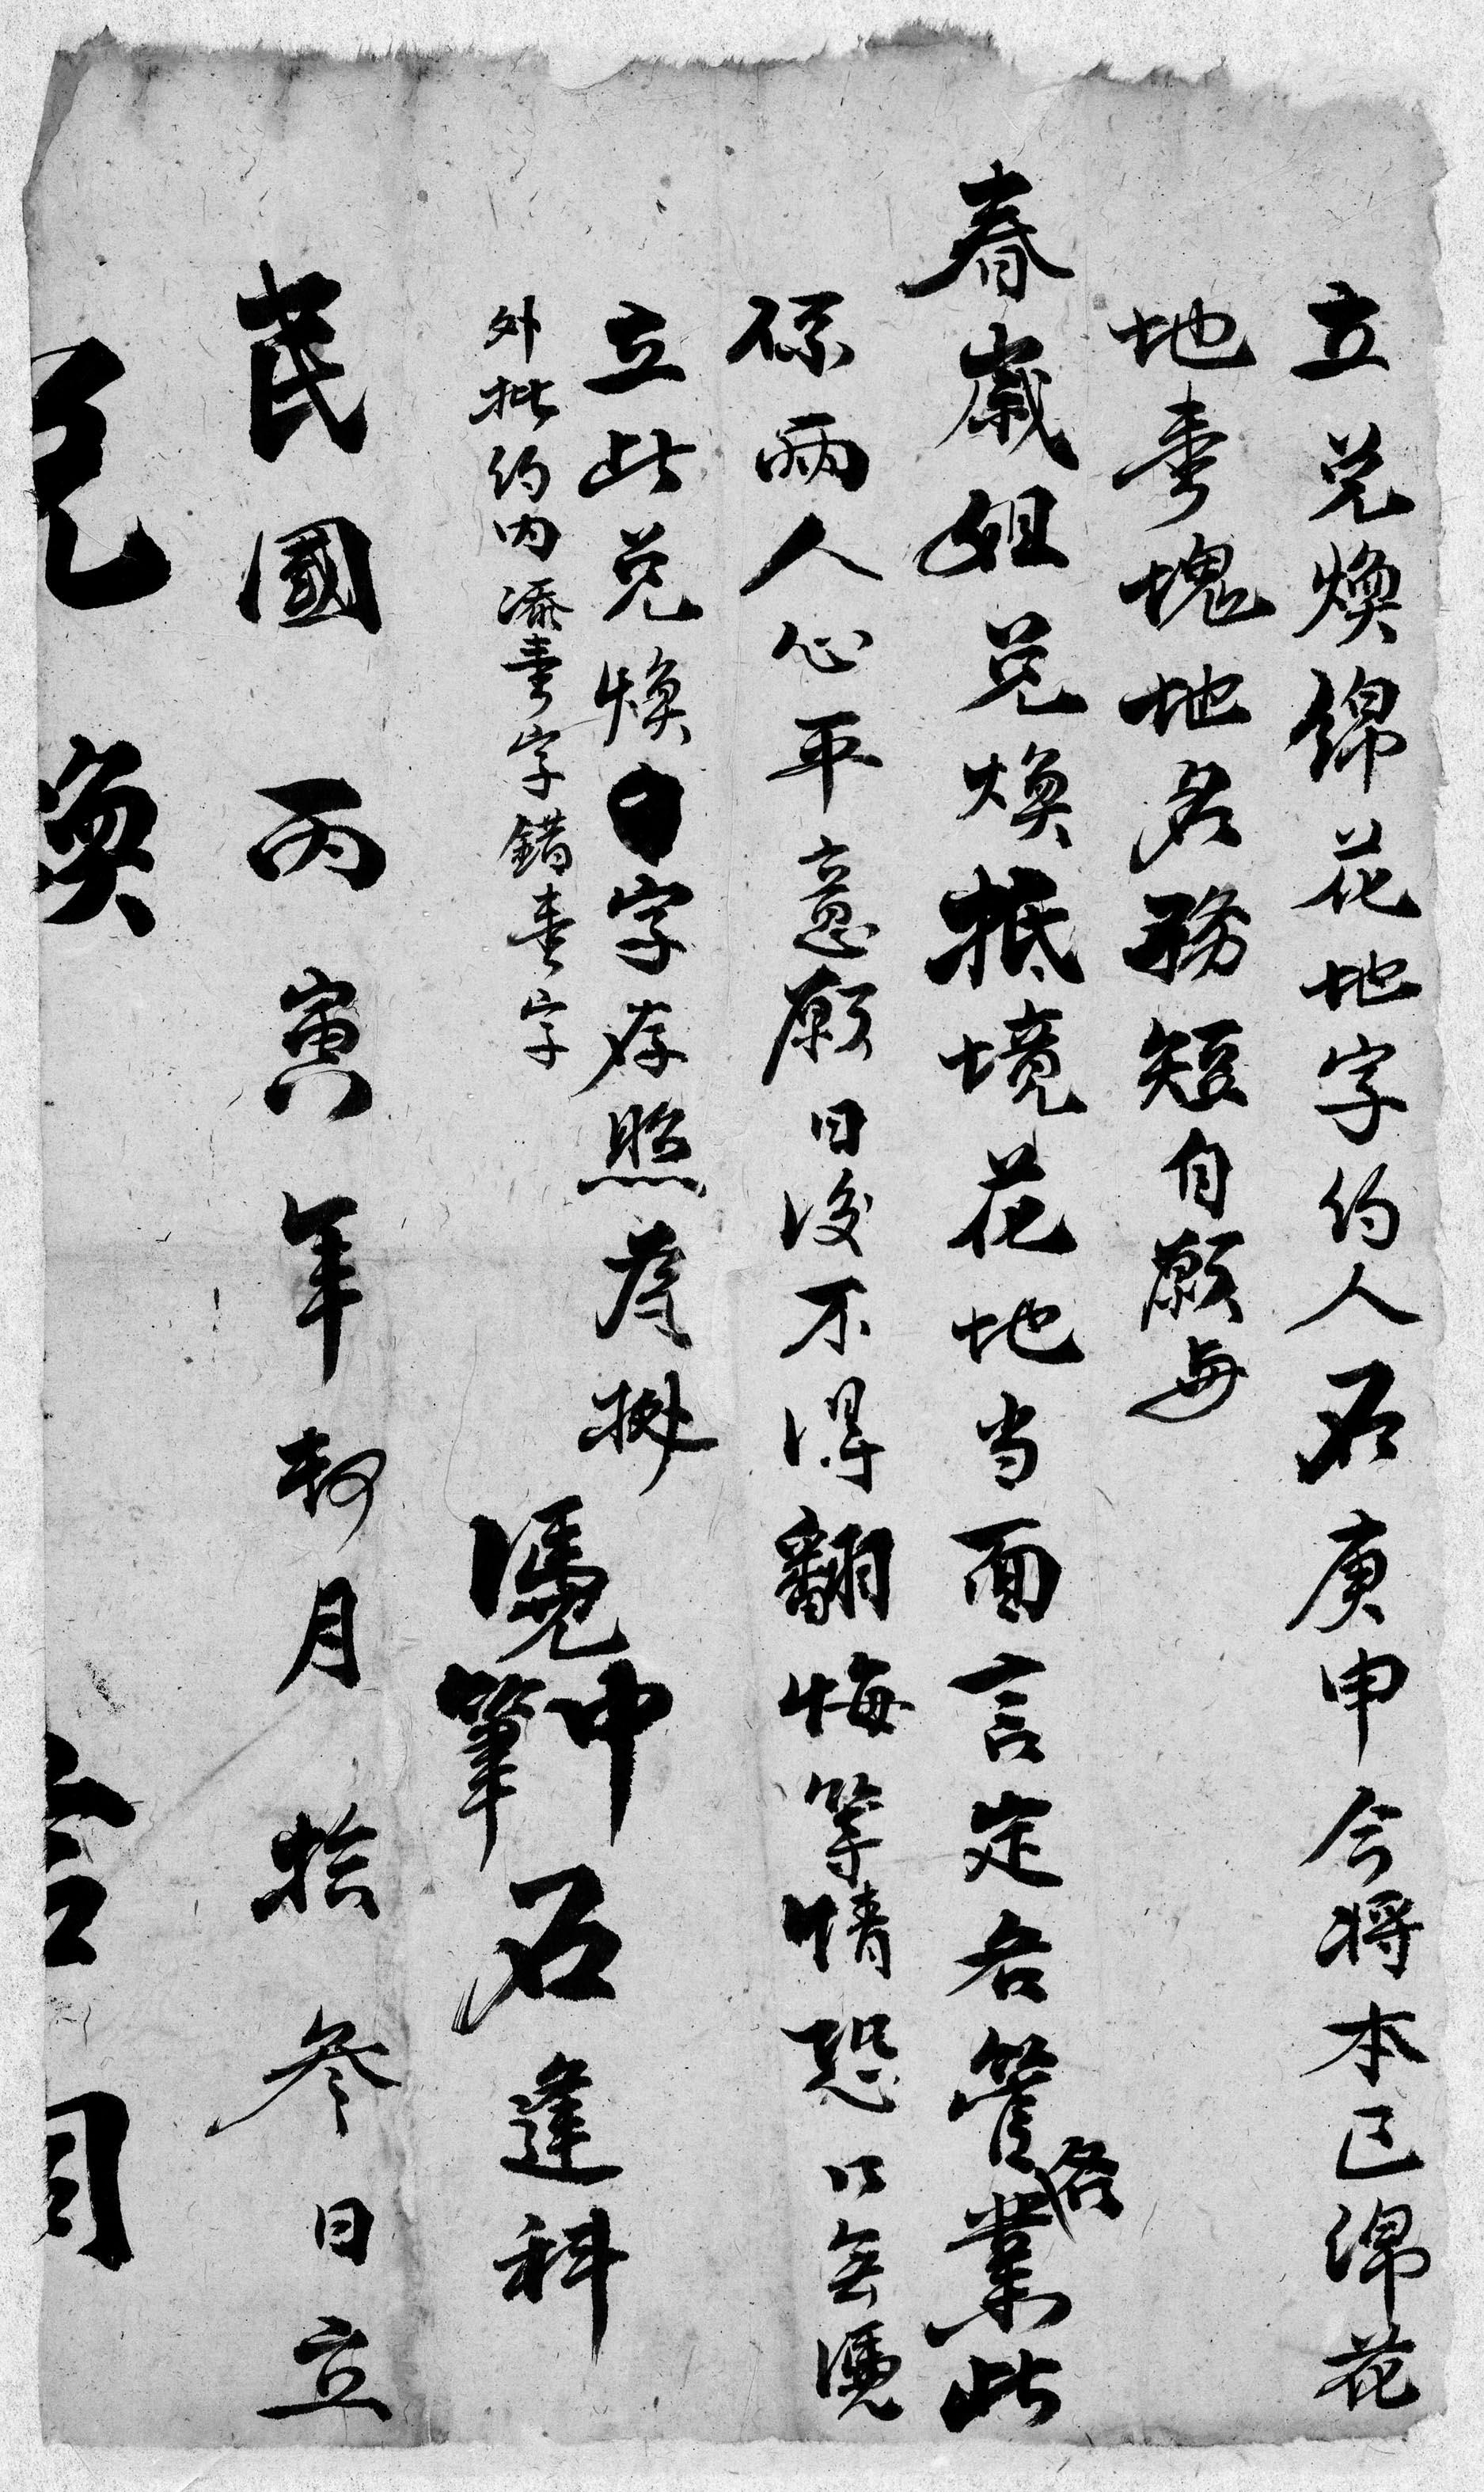 立兑焕錦花地字約人石庚申今将本己綿花
地壹塊地名務短自願与
春歲姐兑焕抵境花地当面言定各管各業此
係兩人心平意願日後不得翻悔等情恐口無憑
立此兑焕字存照為據
外批約内添壹字錯壹字
憑中筆石逢科
民國丙寅年初月拾叁日立
兑換合同